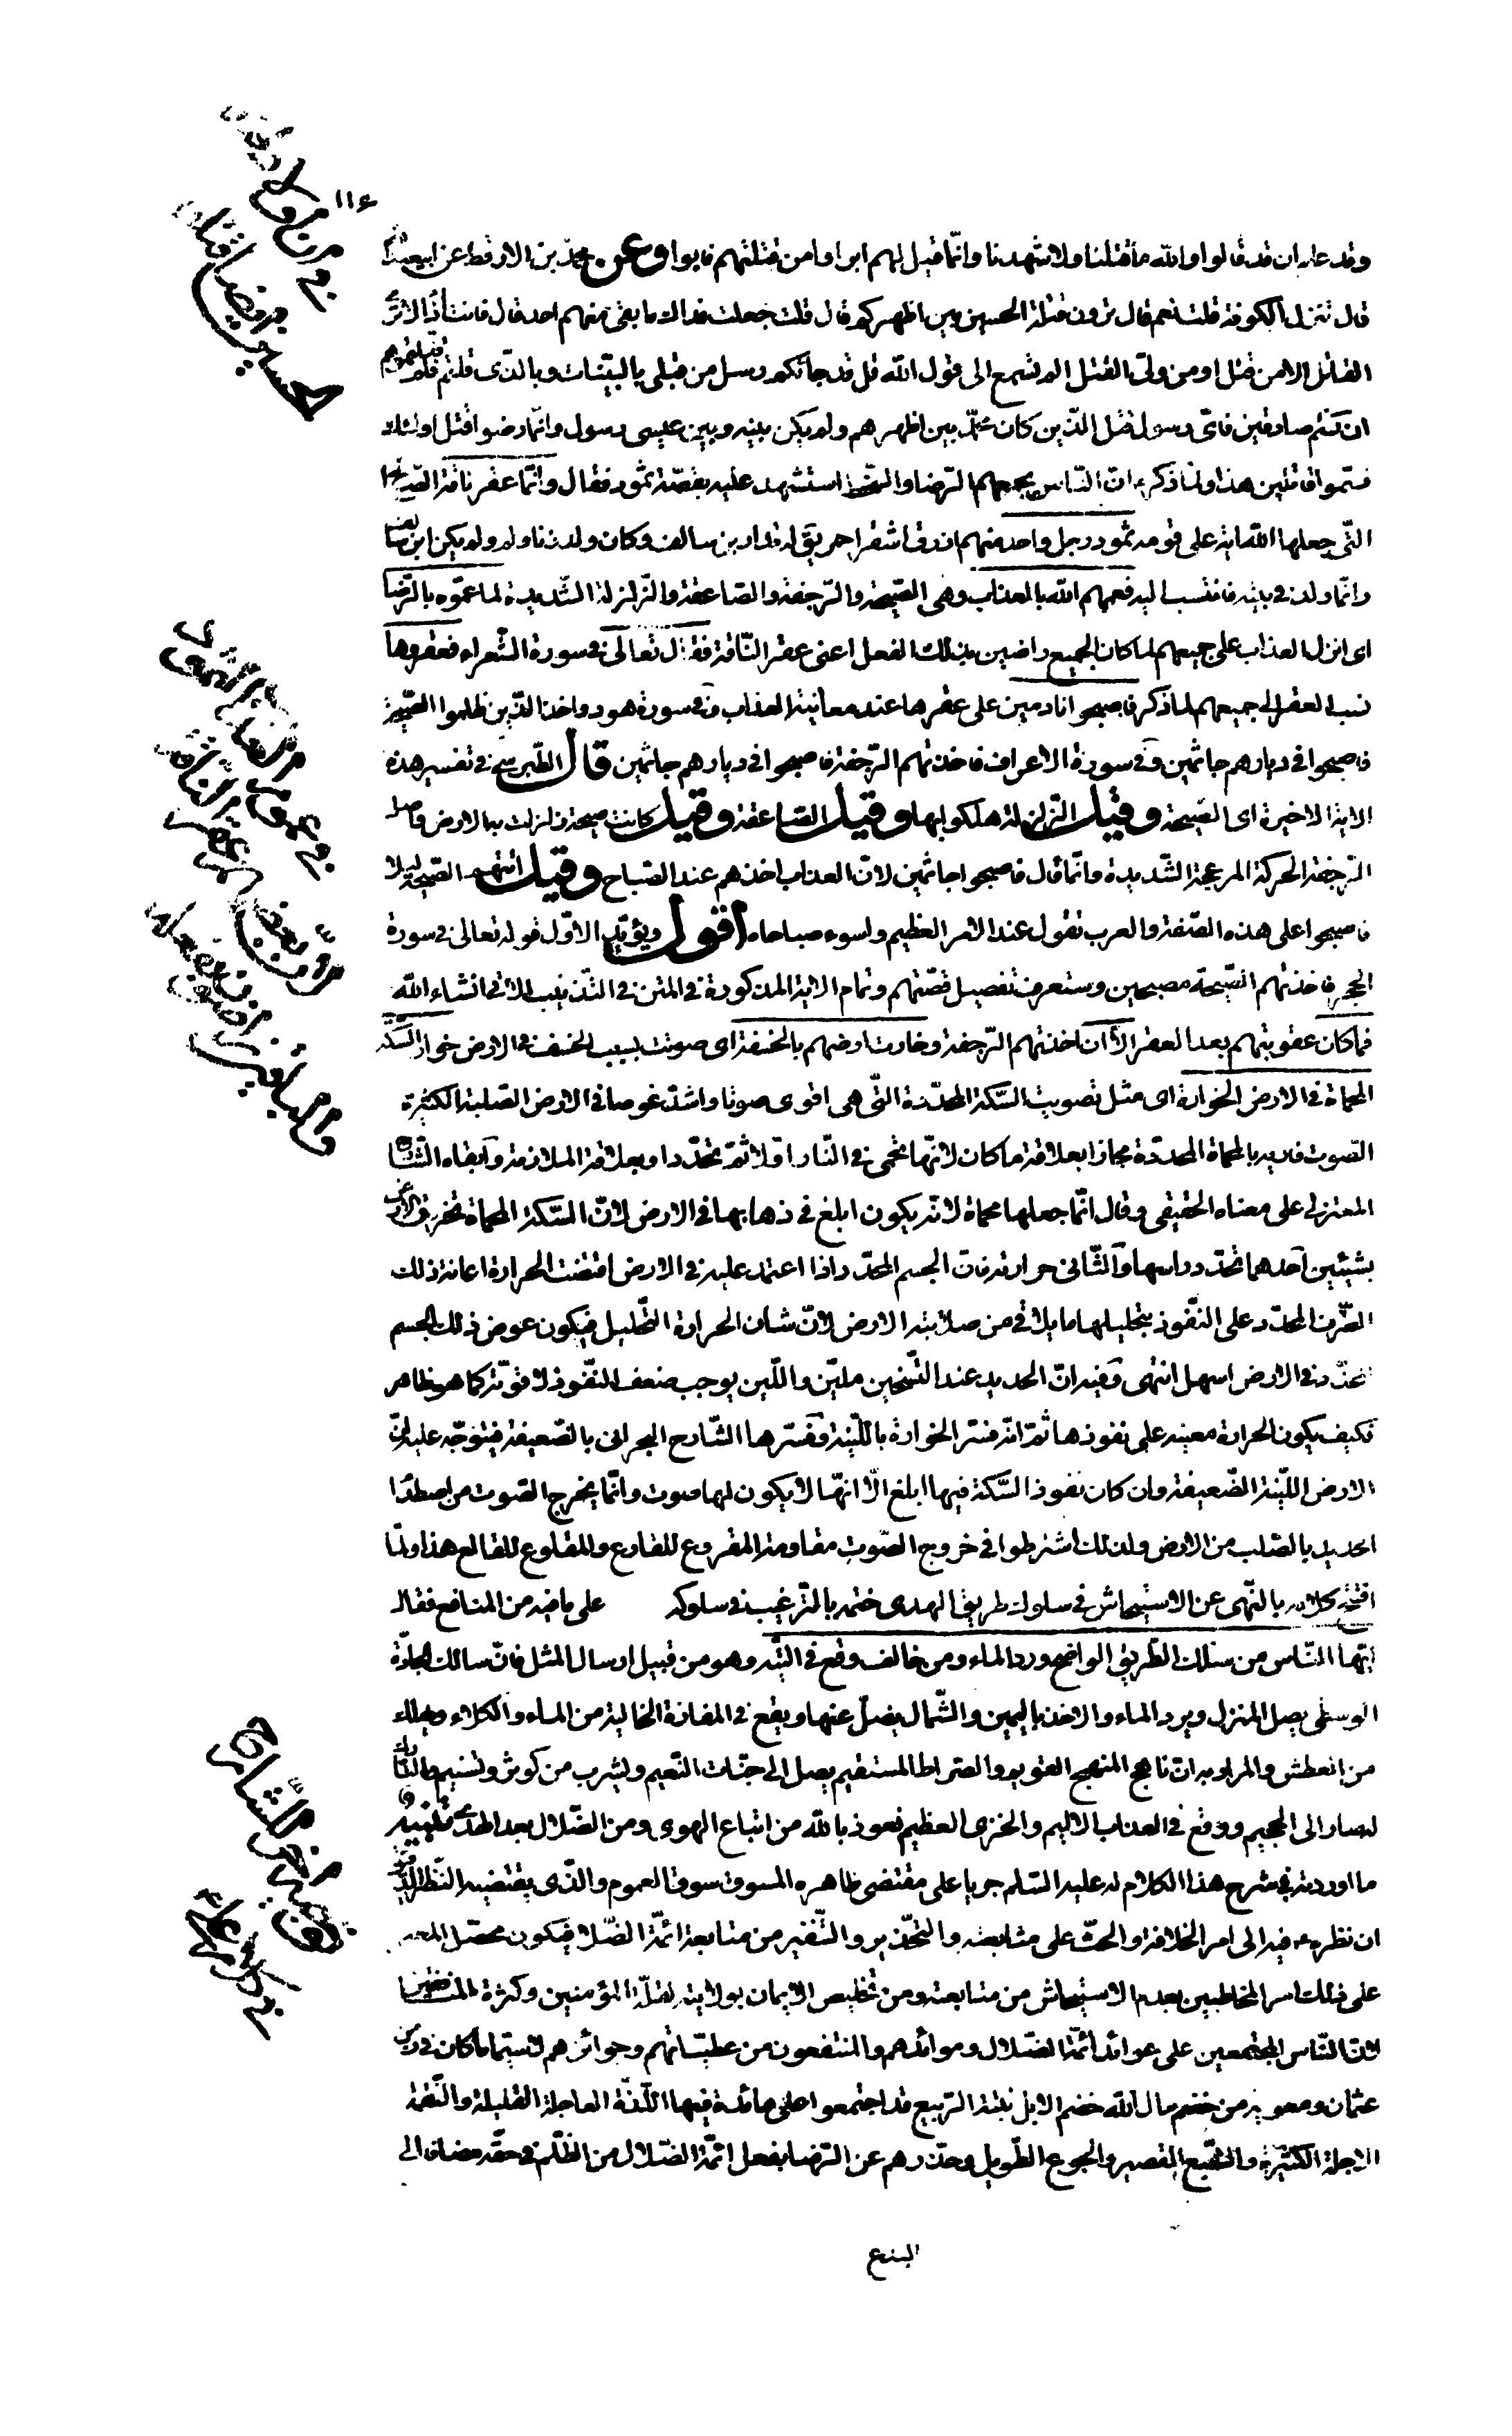 ١١٤
وقد علم ان قد قالوا والله ما قتلنا ولا شهدنا وانّما قيل لهم ابرأوا من قتلتهم فابوا وعن محمّد بن الارقط عن ابيعبدالله
قال تنزل الكوفة قلت نعم قال ترون قتلة الحسين بين اظهركم قال قلت جعلت فداك ما بقى منهم احد قال فانت اذا لا ترى
القاتل الا من قتل او من ولّى القتل الم تسمع الى قول الله قل قد جائكم رسل من قبلى بالبيّنات وبالذّى قلتم فلم قتلتموهم
ان كنتم صادقين فاىّ رسول قتل الذّين كان محمّد بين اظهرهم ولم يكن بينه وبين عيسى رسول وانّما رضوا قتل اولئك
فسمّوا قاتلين هذا ولمّا ذكره انّ النّاس يجمعهم الرّضا والسّخط استشهد عليه بقصّة ثمود فقال وانّما عقر ناقة الصّالح
التّى جعلها الله اية على قومه ثمود رجل واحد منهم ازرق اشقر احمر يق له قدار بن سالف وكان ولد زنا ولم يكن ابن سالف
وانّما ولد فى بيته فانتسب اليه فعمهم الله بالعذاب وهى الصّيحة والرّجفة والصّاعقة والزّلزلة الشّديدة لما عمّوه بالرّضا
اى انزل العذاب على جميعهم لما كان الجميع راضين بذلك الفعل اعنى عقر النّاقة فقال تعالى فى سورة الشّعراء فعقروها
نسب العقر الى جميعهم لما ذكر فاصبحوا نادمين على عقرها عند معاينة العذاب وفى سورة هود واخذ الذّين ظلموا الصّيحة
فاصبحوا فى ديارهم جاثمين وفى سورة الاعراف فاخذتهم الرّجفة فاصبحوا فى ديارهم جاثمين قال الطّبرسى فى تفسير هذه
الاية الاخيرة اى الصّيحة وقيل الزّلزلة هلكوا بها وقيل الصّاعقة وقيل كانت صيحة زلزلت بها الارض واصل
الرّجفة الحركة المزعجة الشّديدة وانّما قال فاصبحوا جاثمين لانّ العذاب اخذهم عند الصّباح وقيل اتتهم الصّيحة ليلا
فاصبحوا على هذه الصّفة والعرب تقول عند الامر العظيم واسوء صباحاه اقول ويؤيّد الاوّل قوله تعالى فى سورة
الحجر فاخذتهم الصّيحة مصبحين وستعرف تفصيل قصّتهم وتمام الاية المذكورة فى المتن فى التّذنيب الاتى انشاء الله
فما كان عقوبتهم بعد العقر الّا ان اخذتهم الرّجفة وخارت ارضهم بالخسفة اى صوتت بسبب الخسف فى الارض خوار السّكّة
المحماة فى الارض الخوارة اى مثل تصويت السّكة المحدّدة التّى هى اقوى صوتا واشدّ غوصا فى الارض الصّلبة الكثيرة
الصّوت فاريد بالمحماة المحدّدة مجازا بعلاقة ما كان لانّها تحمى فى النّار اوّلا ثمّ تحدّد او بعلاقة الملازمة وابقاه الشّارح
المعتزلى على معناه الحقيقى وقال انّما جعلها محماة لانّه يكون ابلغ فى ذهابها فى الارض لانّ السّكة المحماة تخرق الارض
بشيئين احدهما تحدّد راسها والثّانى حرارته فانّ الجسم المحدّد اذا اعتمد عليه فى الارض اقتضت الحرارة اعانة ذلك
الطّرف المحدّد على النّفوذ بتحليلها ما يلاقى من صلابته الارض لانّ شان الحرارة التّحليل فيكون غوص ذلك الجسم
المحدّد فى الارض اسهل انتهى وفيه انّ الحديد عند التّسخين مليّن واللّين يوجب ضعف النّفوذ لا قوّته كما هو ظاهر
فكيف يكون الحرارة معينة على نفوذها ثمّ انّه فسّر الخوارة باللّيّنة وفسّرها الشّارح البحرانى بالضعيفة فيتوجّه عليه انّ
الارض اللّيّنة الضّعيفة وان كان نفوذ السّكة فيها ابلغ الّا انهّا لا يكون لها صوت وانّما يخرج الصّوت من اصطكاك
الحديد بالصّلب من الارض ولذلك اشترطوا فى خروج الصّوت مقاومة المقروع للقارع والمقلوع للقالع هذا ولمّا
افتتح كلامه بالنّهى عن الاستيحاش فى سلوك طريق الهدى ختمه بالترّغيب فى سلوكه على ما فيه من المنافع فقال
ايّها النّاس من سلك الطّريق الواضح ورد الماء ومن خالف وقع فى التّيه وهو من قبيل ارسال المثل فانّ سالك الجادّة
الوسطى يصل المنزل ويرد الماء والاخذ باليمين والشّمال يضلّ عنها ويقع فى المفازة الخالية من الماء والكلاء ويهلك
من العطش والمراد به انّ ناهج المنهج القويم والصراط المستقيم يصل الى جنّات النّعيم ويشرب من كوثر وتسنيم والتّارك
له صار الى الجحيم ووقع فى العذاب الاليم والخزى العظيم نعوذ بالله من اتباع الهوى ومن الضّلال بعد الهدى تنبيه
ما اوردته فى شرح هذا الكلام له عليه السّلم جريا على مقتضى ظاهره المسوق سوق العموم والذّى يقتضيه النّظر الدّقيق
ان نظره ع فيه الى امر الخلافة والحثّ على متابعته والتحّذير والتّنفير من متابعة ائمّة الضّلال فيكون محصّل
على ذلك امر المخاطبين بعدم الاستيحاش من متابعته ومن تخليص الايمان بولايته لقلّة المؤمنين وكثرة المنافقين
لانّ النّاس المجتمعين على عوائد ائمّة الضّلال وموائدهم والمنتفعون من عطيّاتهم وجوائزهم لا سيّما ما كان فى زمن
عثمان ومعوية من خضم مال الله خضم الابل نبتة الرّبيع قد اجتمعوا على مائدة فيها اللّذّة العاجلة القليلة والنّقمة
الاجلة الكثيرة والشّبع القصير والجوع الطّويل وحذّرهم عن الرّضا بفعل ائمّة الضّلال من الظّلم فى حقّه مضافا الى